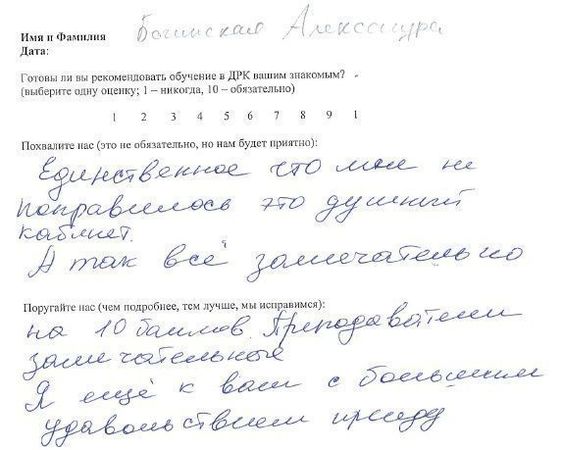 Имя и Фамилия Богинская Александра
Дата:
Готовы ли вы рекомендовать обучение в ДРК вашим знакомым?
(выберите одну оценку; 1 – никогда, 10 – обязательно)
1 2 3 4 5 6 7 8 9 1
Похвалите нас (это не обязательно, но нам будет приятно):
Единственное что мне не
понравилось это душный
кабинет.
А так всё замечательно
Поругайте нас (чем подробнее, тем лучше, мы исправимся):
на 10 баллов. Преподаватели
замечательные
Я ещё к вам с большим
удавольствием приеду